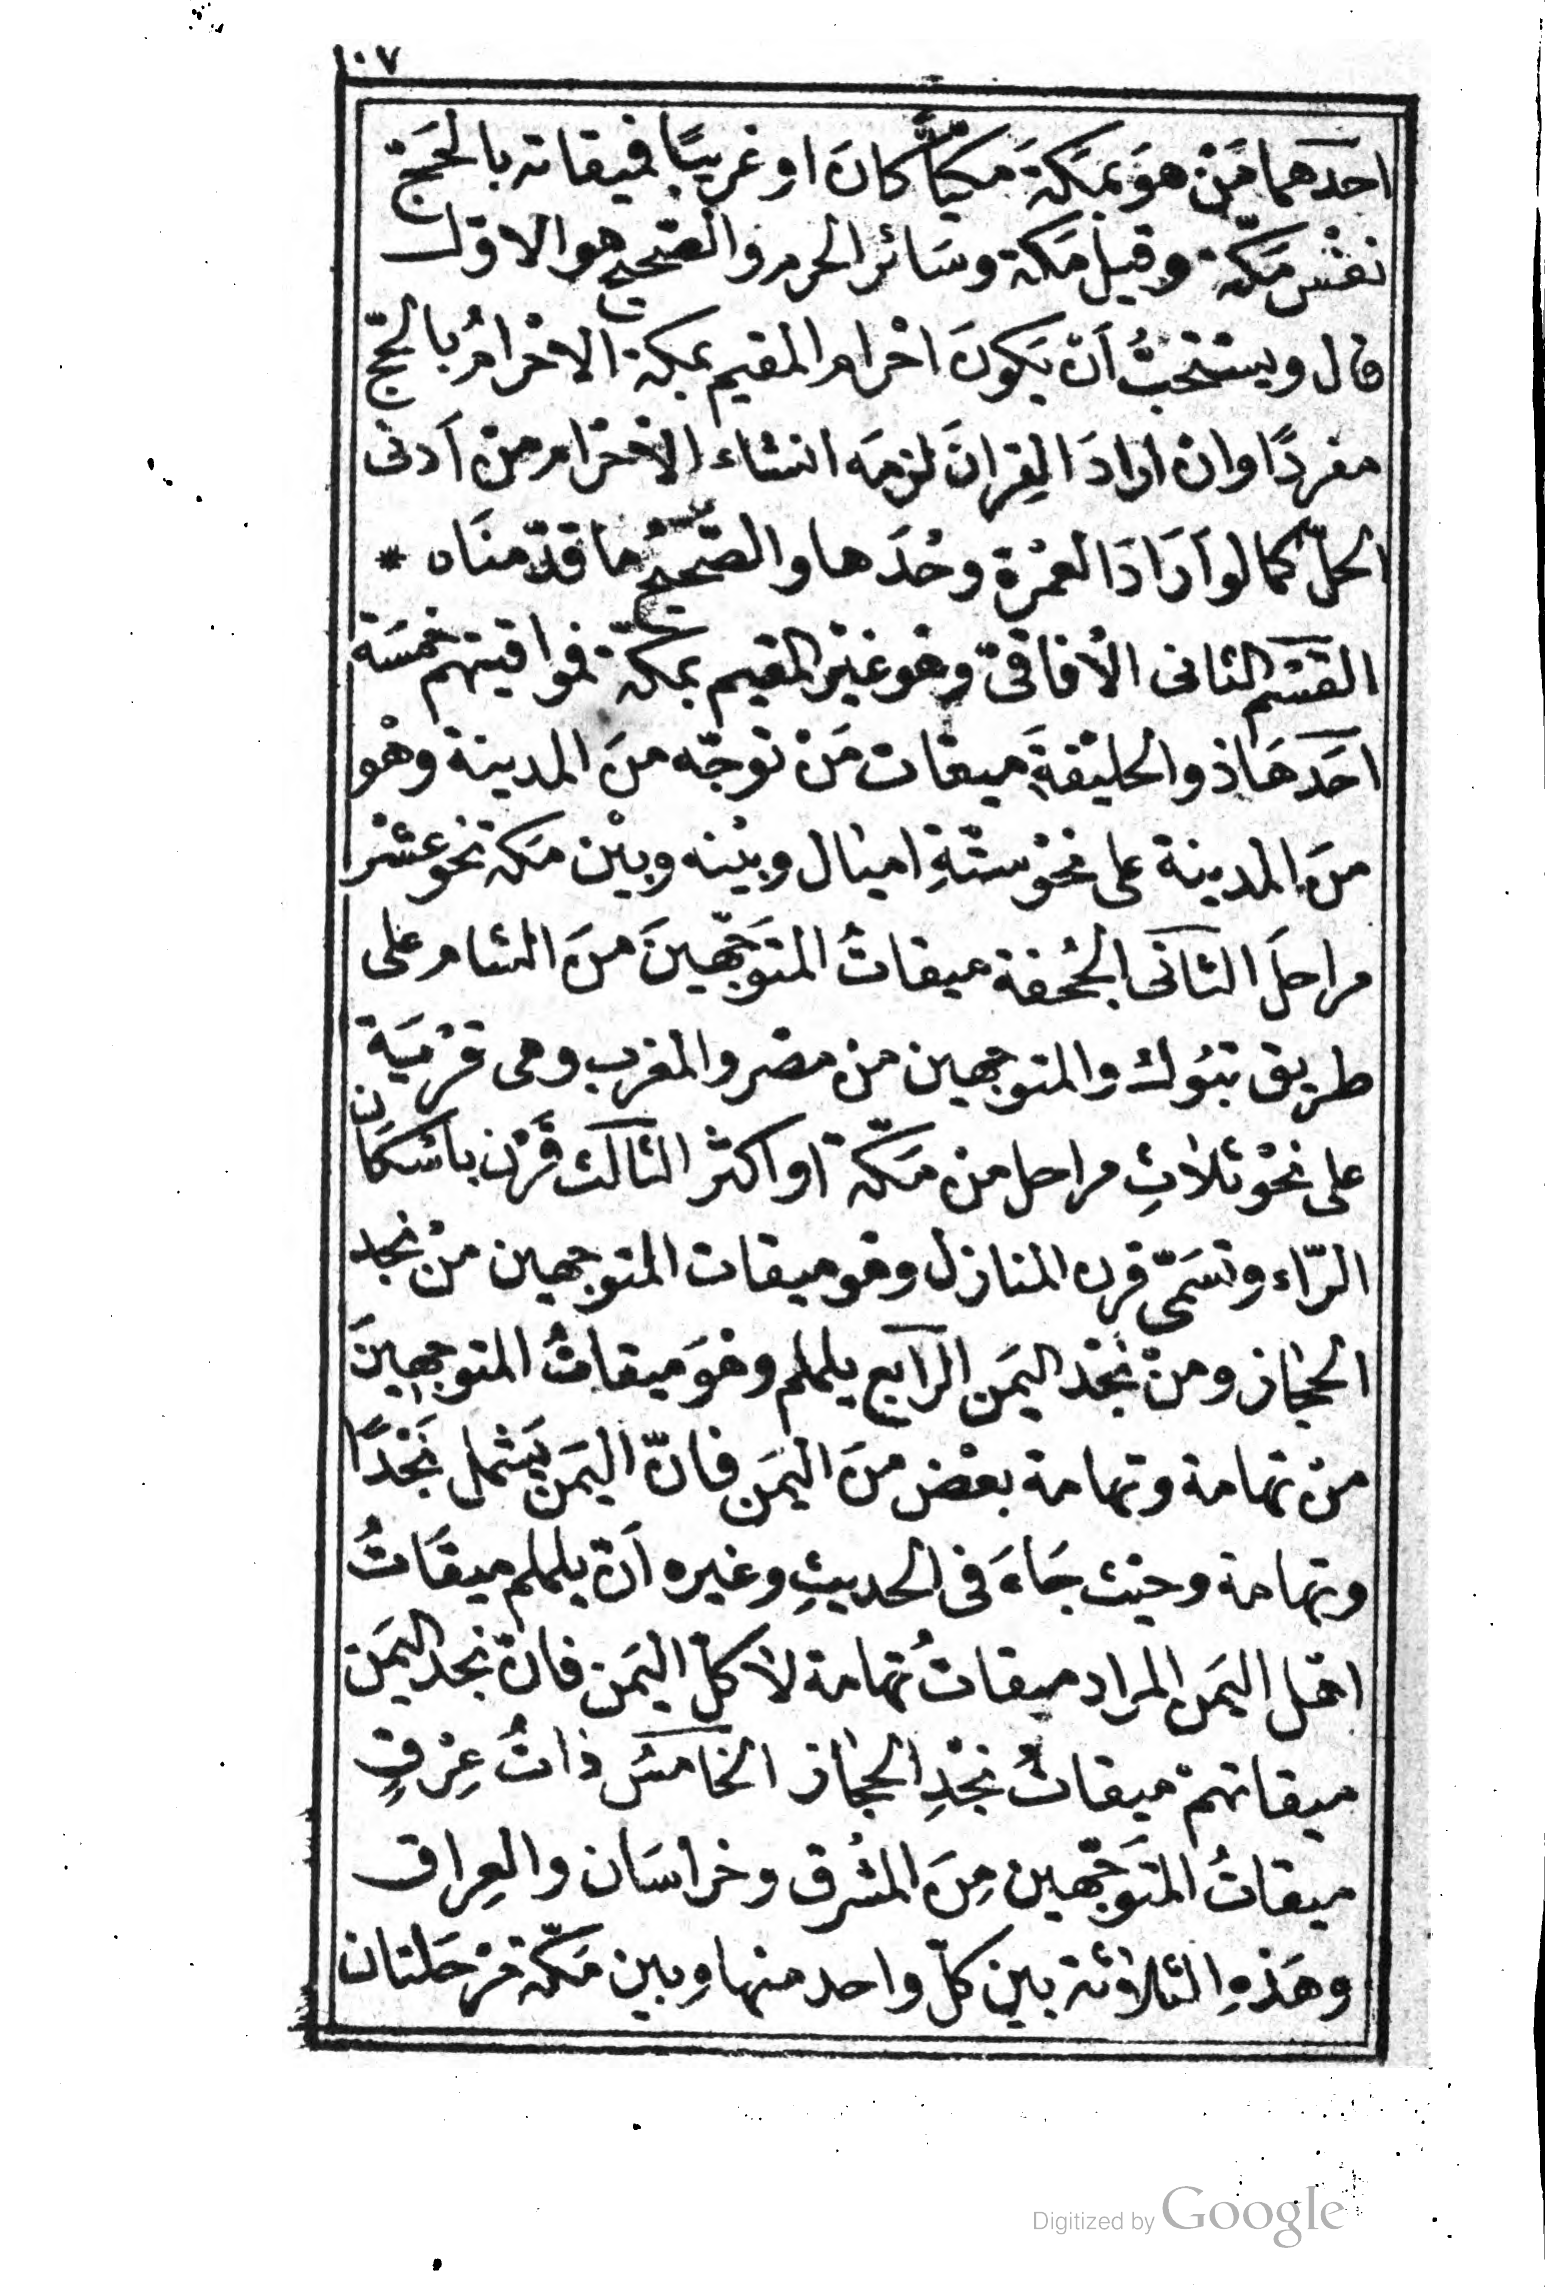 ١٠٧
احَدهما مَنْ هوَ بمَكّةَ مكيًّا كانَ او غريبًا فميقاته بالحَجّ
نفْس مَكّة وقيل مَكة وسَائر الحرم والصّحيح هو الاوّل
قال ويسْتحبُّ اَنْ يَكونَ احْرام المقيم بمكة الاحْرامُ بالحجّ
مفردًا وان ارادَ القِرانَ لزمَه انشاء الاحْرَام من اَدنى
الحلّ كما لو اَرَادَ العمْرَة وحْدَها والصّحيحُ ما قدّمنَاه *
القسْم الثانى الأفاقىّ وهو غيْر المقيم بمكّة فمواقيتهم خمسَة
احَدهَا ذو الحليْفةِ ميقات مَنْ توجّه منَ المدينة وهْو
منَ المدينة على نحْو ستّةِ اميَال وبيْنه وبيْن مَكة نحو عشْر
مراحلَ الثانى الجُحفة ميقاتُ المتوَجّهينَ منَ الشام على
طريق تبُوك والمتوجهين من مصْر والمغرب وهى قرْيَة
على نحْو ثلاثِ مراحل من مَكّة او اكثر الثالث قَرْن باسْكان
الرّاء وتسَمّى قرن المنازل وهو ميقات المتوجهين منْ نجد
الحجَاز ومنْ نجْد اليمَن الرابع يلملم وهوَ ميقاتُ المتوجهينَ
منْ تهامة وتهامة بعْض منَ اليمَن فانّ اليمَن يَشْمل نَجْدًا
وتهامة وحيْث جَاءَ فى الحديثِ وغيره اَنّ يلملم ميقَاتُ
اهْل اليمَن المراد ميقاتُ تهامة لا كلّ اليمَن فانّ نجد اليمَن
ميقاتهمْ ميقاتُ نجْدِ الحجَاز الخامسُ ذاتُ عِرْقٍ
ميقاتُ المتوَجّهين مِنَ المشْرق وخراسَان والعِراق
وهَذهِ الثلاثة بين كلّ واحد منها وبين مَكّة مرْحَلتان
Digitized by Google